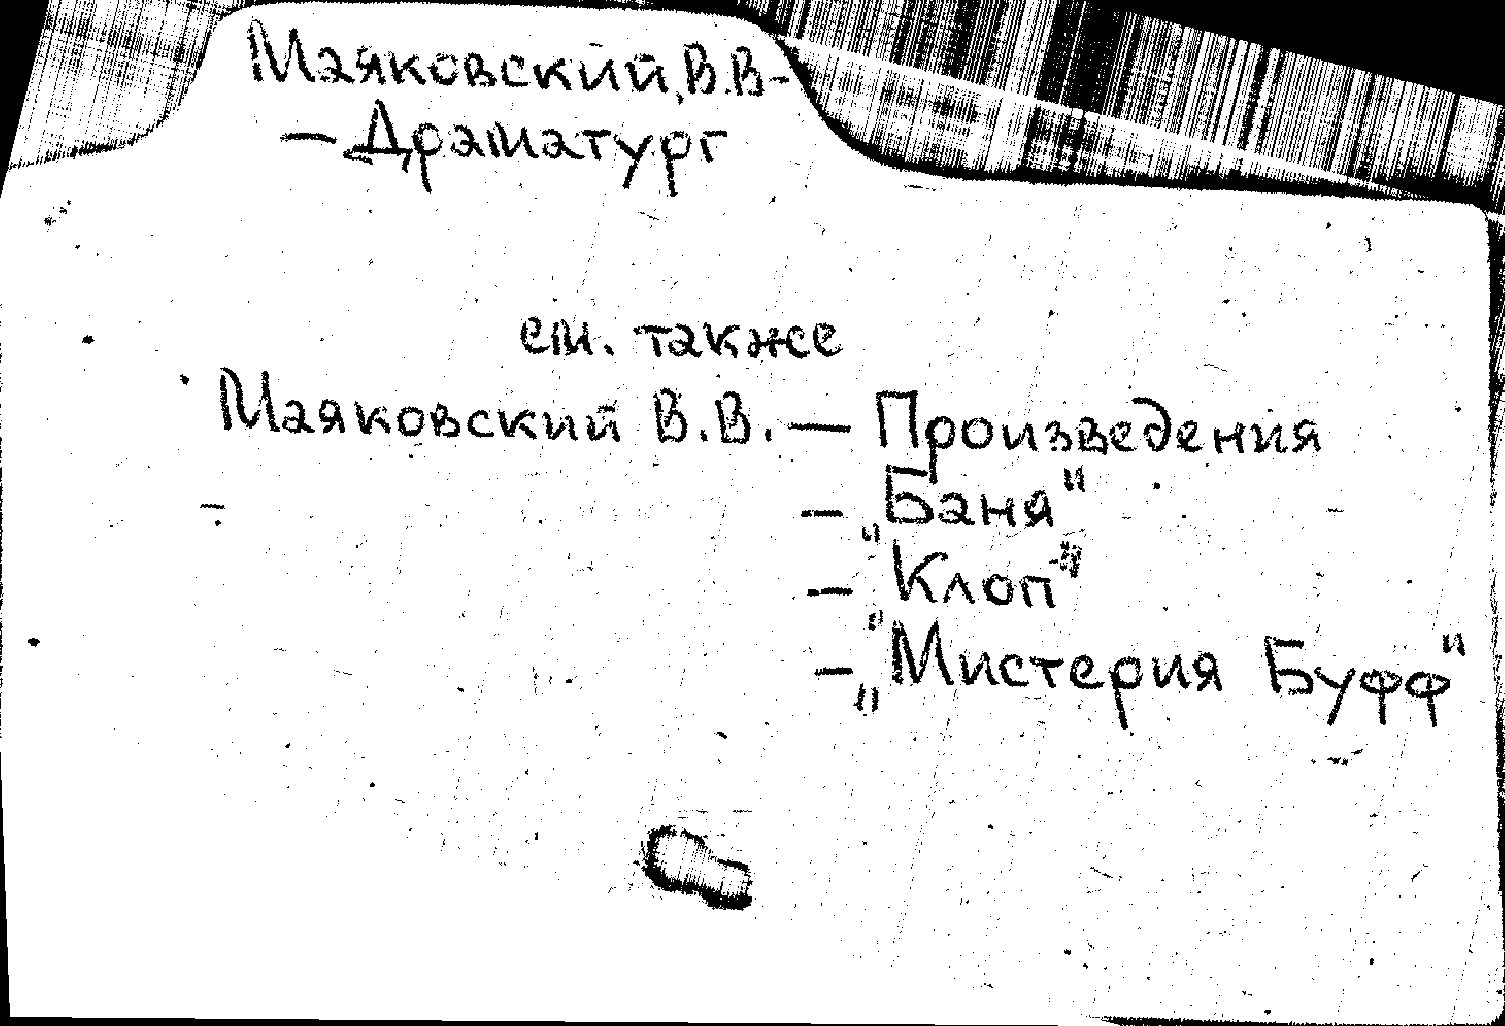 Маяковский, В.В-
— Драматург
см. также
Маяковский В.В. — Произведения
— „Баня"
— „Клоп"
— „Мистерия Буфф"